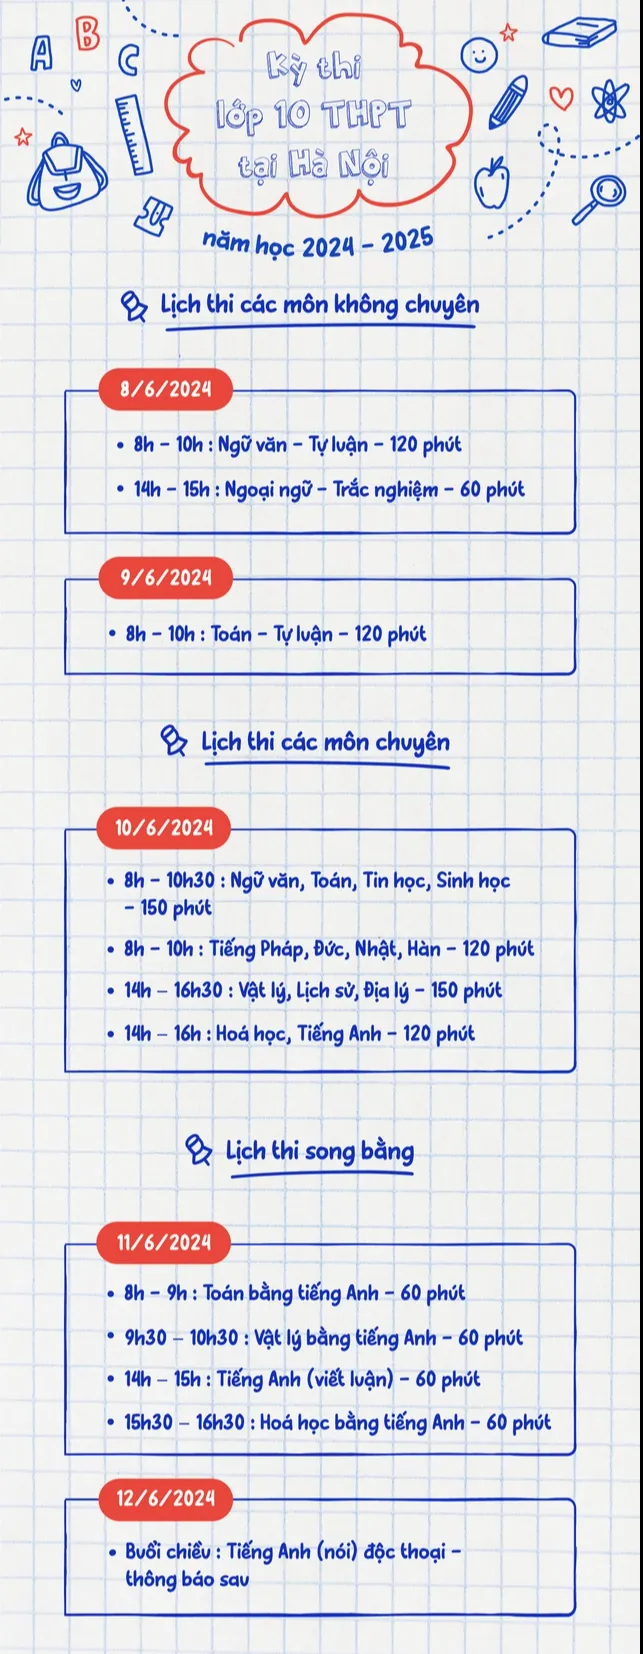 A
B
C
Kỳ thi
lớp 10 THPT
tại Hà Nội
năm học 2024 - 2025
Lịch thi các môn không chuyên
8/6/2024
• 8h - 10h : Ngữ văn - Tự luận - 120 phút
• 14h - 15h : Ngoại ngữ - Trắc nghiệm - 60 phút
9/6/2024
• 8h - 10h : Toán - Tự luận - 120 phút
Lịch thi các môn chuyên
10/6/2024
• 8h - 10h30 : Ngữ văn, Toán, Tin học, Sinh học
- 150 phút
• 8h - 10h : Tiếng Pháp, Đức, Nhật, Hàn - 120 phút
• 14h – 16h30 : Vật lý, Lịch sử, Địa lý - 150 phút
• 14h – 16h : Hoá học, Tiếng Anh - 120 phút
Lịch thi song bằng
11/6/2024
• 8h - 9h : Toán bằng tiếng Anh - 60 phút
• 9h30 – 10h30 : Vật lý bằng tiếng Anh - 60 phút
• 14h – 15h : Tiếng Anh (viết luận) - 60 phút
• 15h30 – 16h30 : Hoá học bằng tiếng Anh - 60 phút
12/6/2024
• Buổi chiều : Tiếng Anh (nói) độc thoại -
thông báo sau